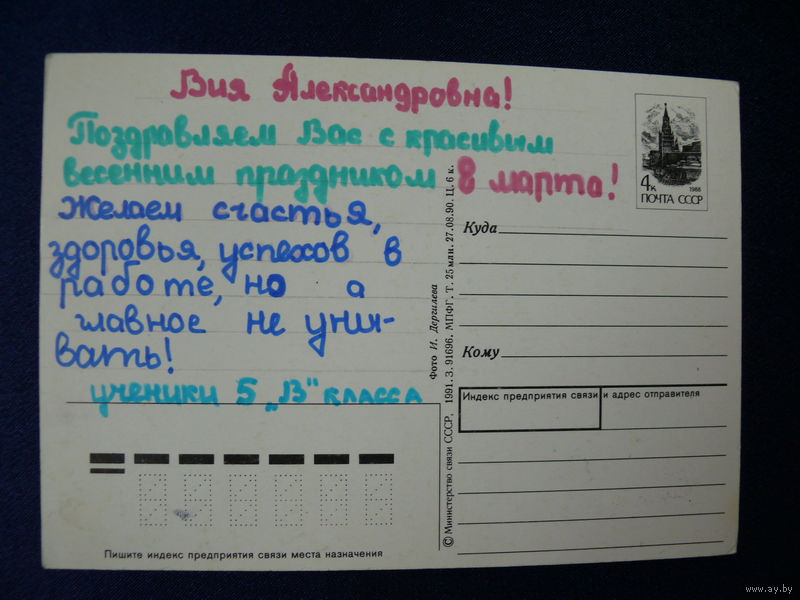 Вия Александровна!
Поздравляем Вас с красивым
весенним праздником 8 марта!
Желаем счастья,
здоровья, успехов в
работе, но а
главное не уны-
вать!
ученики 5 „В" класса
4к
1988
ПОЧТА СССР
Куда
Кому
Индекс предприятия связи и адрес отправителя
Фото И. Дергилева
© Министерство связи СССР, 1991. З. 91696. МПФГ. Т. 25 млн. 27.08.90. Ц. 6 к.
Пишите индекс предприятия связи места назначения
www.ay.by